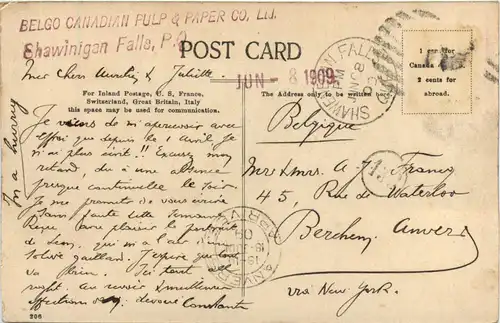 BELGO CANADIAN PULP & PAPER CO. Ltd.
Shawinigan Falls, P.Q.
POST CARD
JUN - 8 1909
SHAWINIGAN FALLS
1 cent for
Canada
2 cents for
abroad.
For Inland Postage, U. S., France,
Switzerland, Great Britain, Italy
this space may be used for communication.
The Address only to be written here.
Mes Chers Aurélie & Juliette
Je viens de m'apercevoir avec
effroi que depuis le 1 Avril je
n'ai plus écrit!! Excusez mon
retard, du à une absence
presque continuelle le soir.
Je me promets de vous écrire
sans faute cette semaine
Reçu avec plaisir le portrait
de Léon, qui m'a l'air
solide gaillard. J'espère que tout
va bien. Ici tout
right. Au revoir & meilleures
affections. dévoué Constant
In a hurry
Belgique
Mr & Mrs A. J. Franq
45, Rue de Waterloo
Berchem, Anvers
via New York.
ANVERS
206